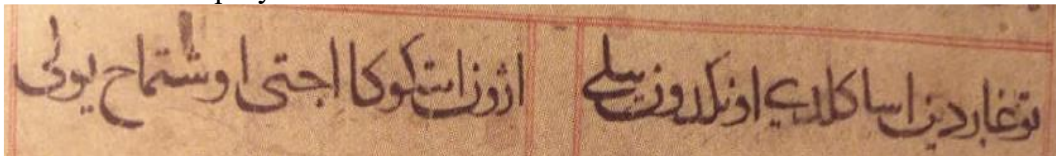 توغاردین اسا کلدی اونکدون یلی اژون اتکوکا اجتی اوشتماح یولی